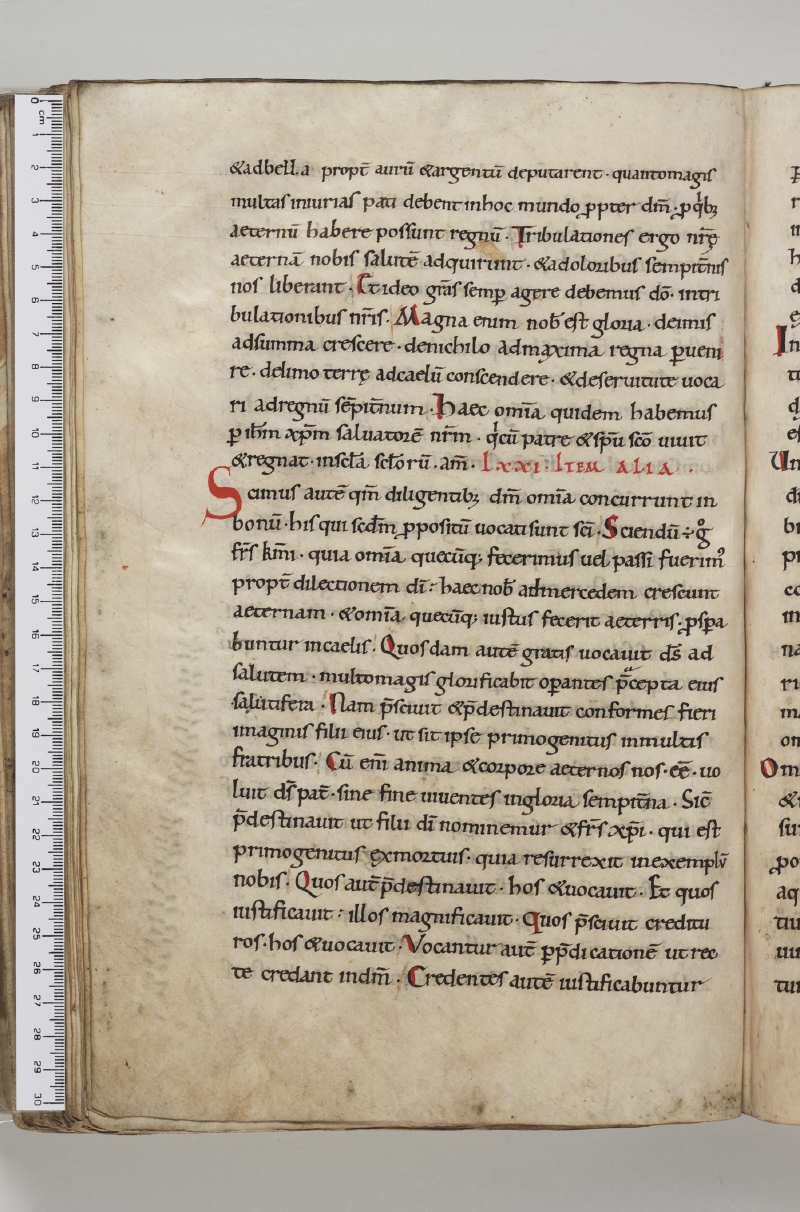 &adbella propt̄ aurū &argentū deputarent· quantomagis
multas iniurias pati debent inhoc mundo ꝓpter dm̄· ꝑqđb;
aeternū habere possunt regnū· Tribulationes ergo nr̄ę
aeternā nobis salutē adquirunt· &adoloribus sempit̄nis
nos liberant· Et ideo gr̄as semꝑ agere debemus dō· intri
bulationibus nr̄is. Magna enim nob̄ est gloria· deimis
adsumma crescere· denichilo admaxima regna ꝑueni
re· delimo terrę adcaelū conscendere· &deseruitute uoca
ri adregnū sēpit̄num· Haec om̄ia quidem habemus
ꝑ ih̄m xp̄m saluatorē nr̄m· qui cū patre &sp̄u scō uiuit
&regnat· inscl̄a scl̄orū· am̄· LXXI: ITEM ALIA·
Scimus autē qm̄ diligentib; dm̄ om̄ia concurrunt in
bonū· his qui scdm̄ ꝓpositū uocati sunt sc̄i· Sciendū ÷ gͦ
fr̄s km̄i· quia om̄ia quecūq; fecerimus uel passi fuerimꝰ
propt̄ dilectionem dī: haec nob̄ admercedem crescunt
aeternam· &om̄ia quecūq; iustus fecerit aeterris· ꝓspa
buntur incaelis. Quosdam autē gratis uocauit ds̄ ad
salutem· multomagis glorificabit oꝑantes p̄cepta eius
salutifera· Nam p̄sciuit &p̄destinauit conformes fieri
imaginis filii eius· ut sit ipse primogenitus inmultis
fratribus. Cū em̄ anima &corpore aeternos nos· eē· uo
luit ds̄ pat̄· sine fine uiuentes ingloria sempit̄na· Sic̄
p̄destinauit ut filii dī nominemur &fr̄s xp̄i· qui est
primogenitus ęxmortuis· quia resurrexit inexemplū
nobis. Quos aut̄ p̄destinauit· hos &uocauit· Et quos
iustificauit: illos magnificauit· Quos p̄sciuit creditu
ros· hos &uocauit· Vocantur aut̄ ꝑp̄dicationē ut rec
te credant indm̄· Credentes autē iustificabuntur